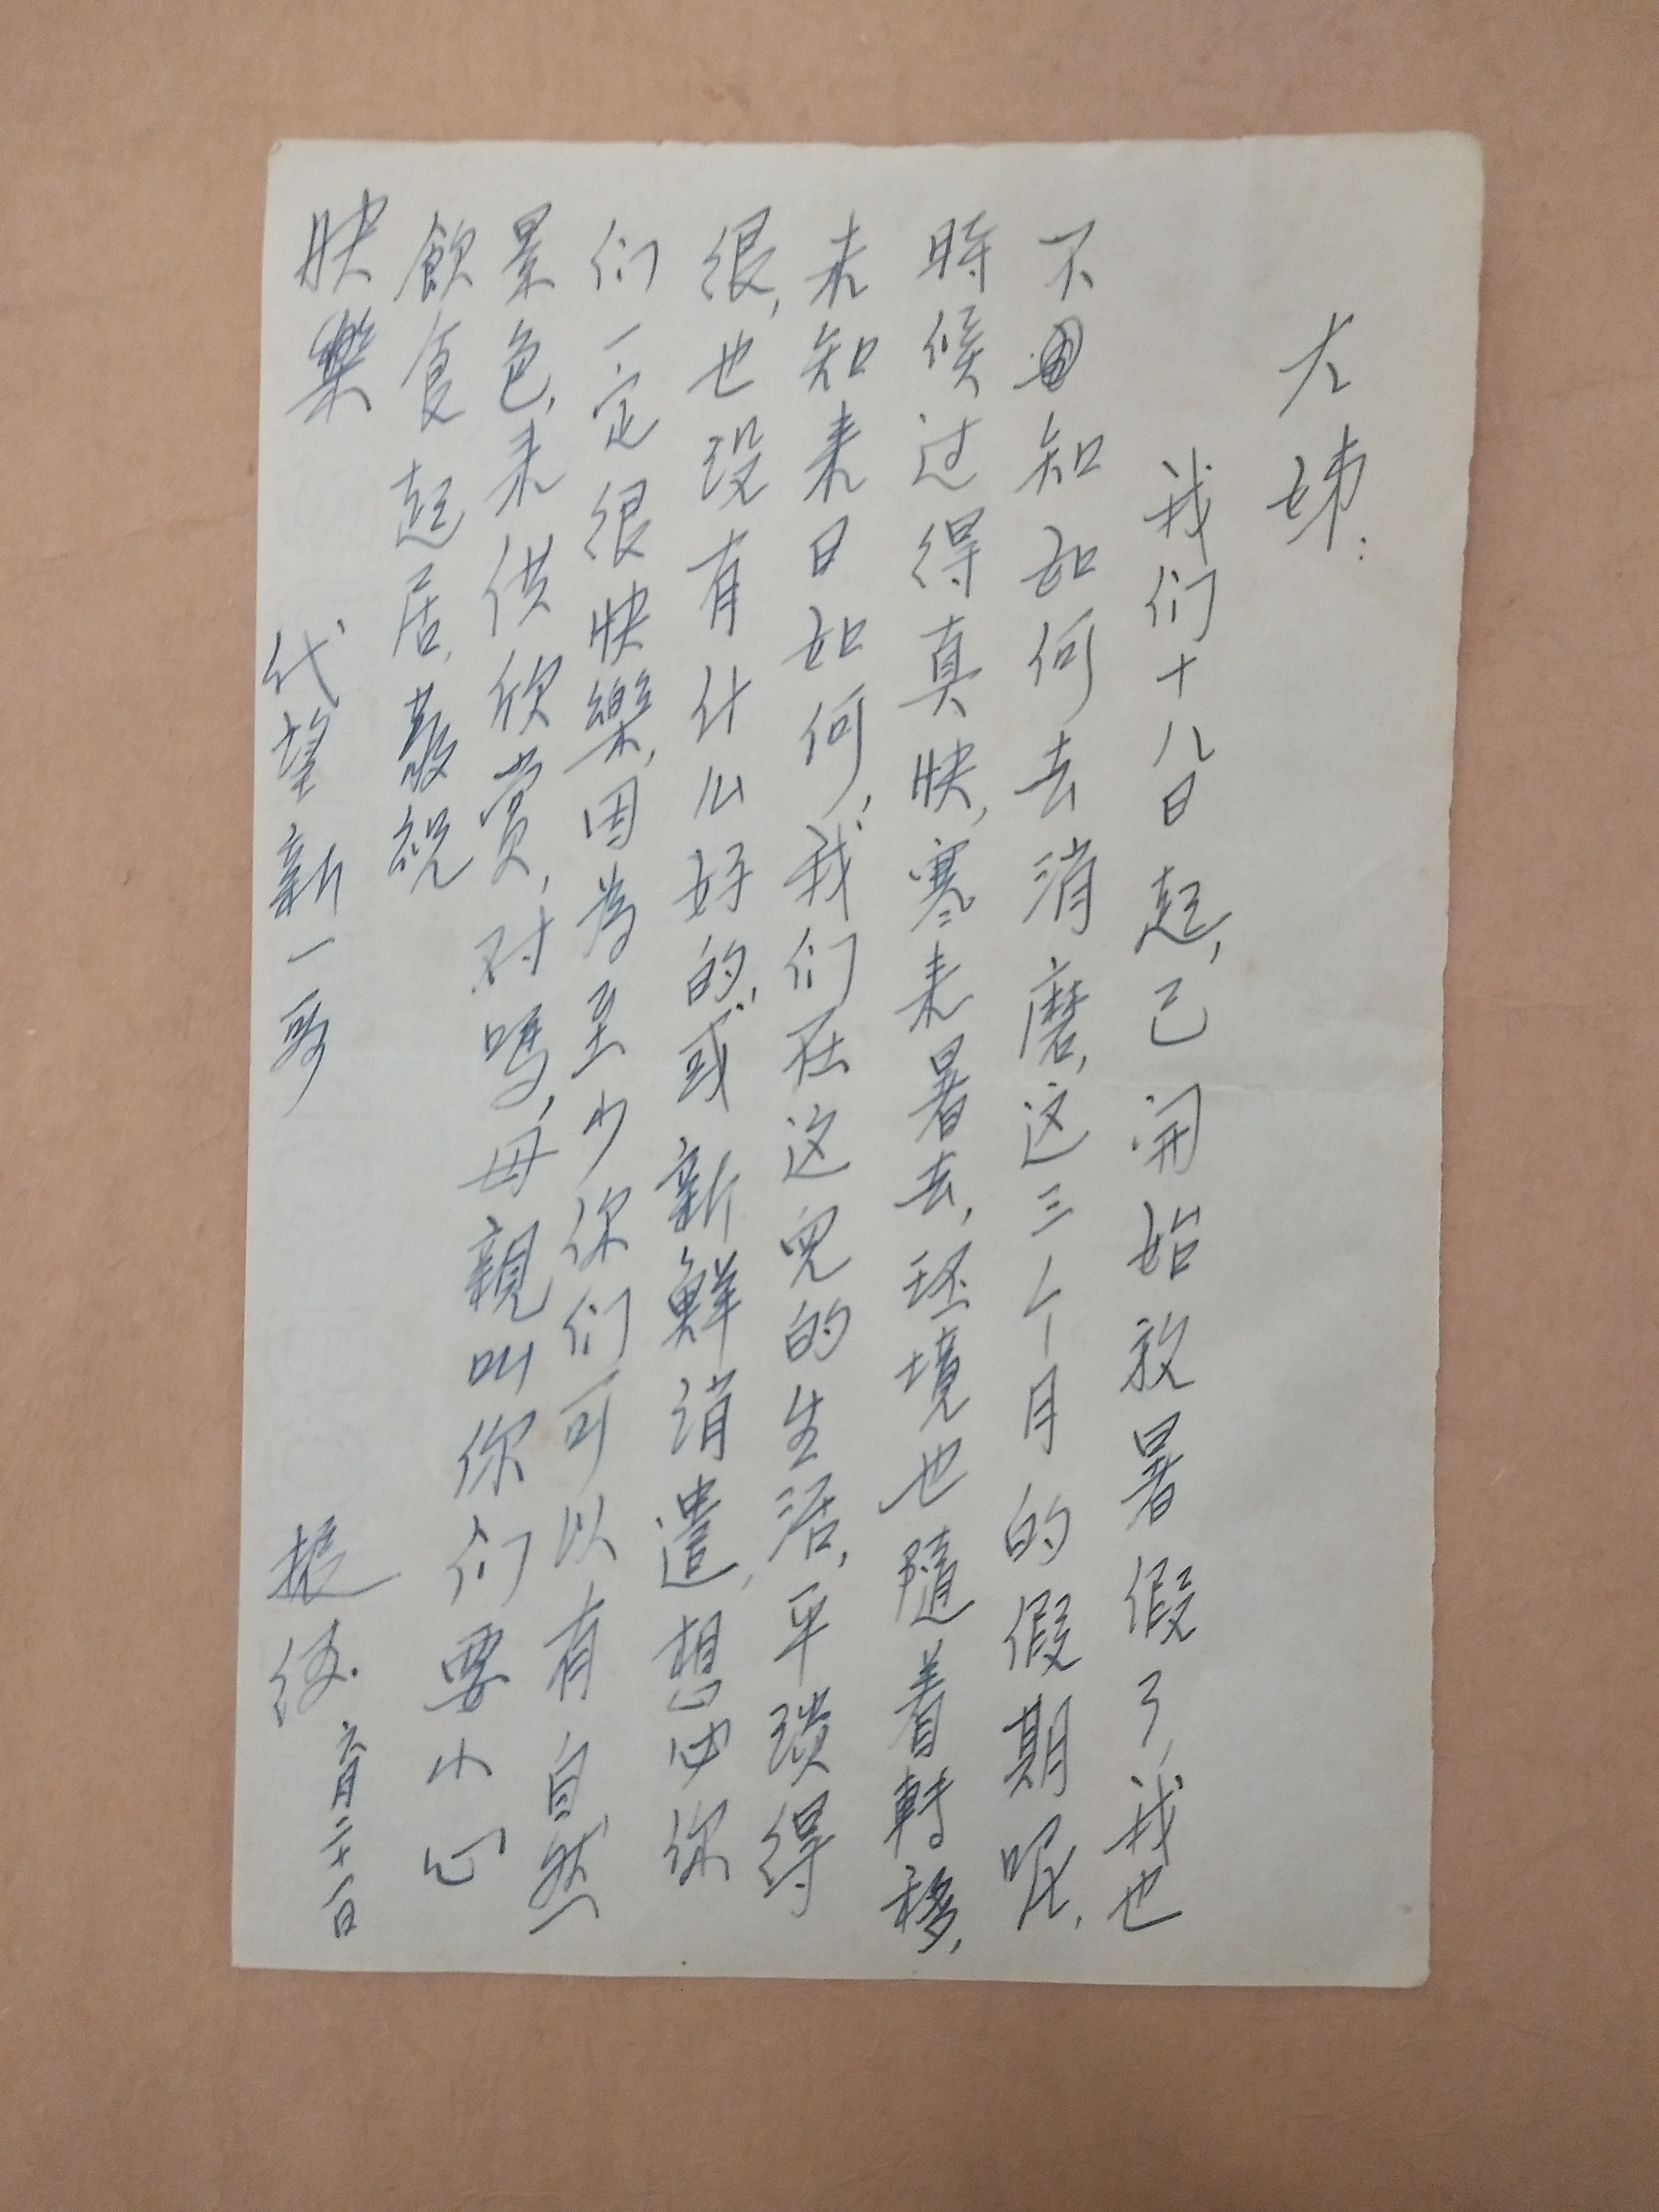 大姊：
我们十八日起，已开始放暑假了，我也
不知如何去消磨，这三个月的假期呢，
時候过得真快，寒来暑去，环境也隨着轉移，
未知来日如何，我们在这兒的生活，平淡得
很，也没有什么好的，或新鮮消遣，想必你
们一定很快樂，因為至少你们可以有自然
景色，来供欣赏，对嗎，母親叫你们要小心
飲食起居，敬祝
快樂
代望新一哥
六月二十一日